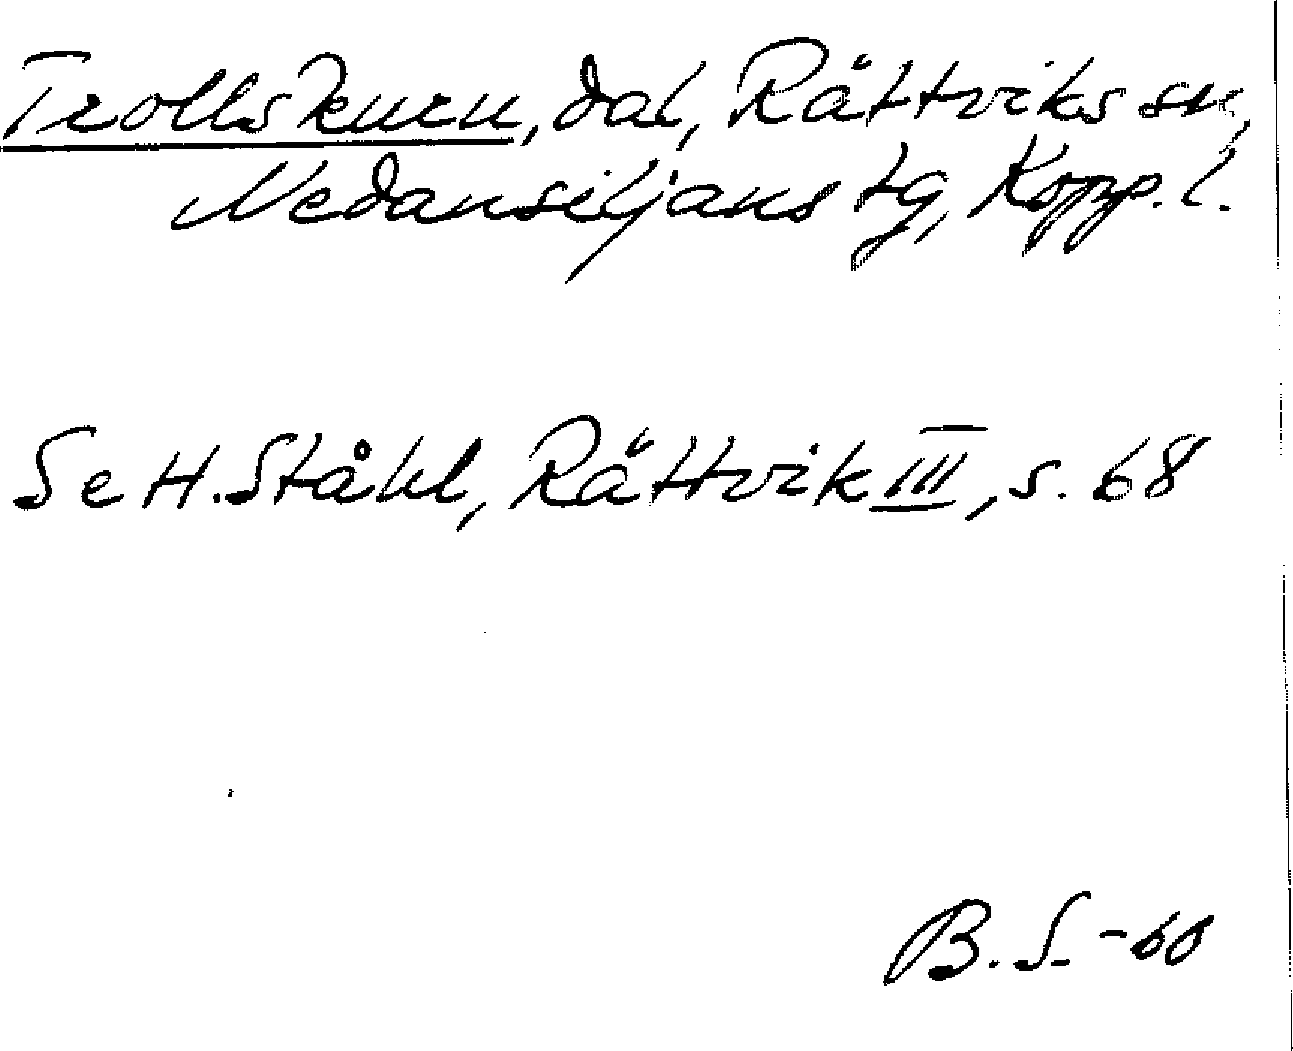 Trollskuru, dal, Rättviks sn,
Nedansiljans tg, Kopp. l.
Se H. Ståhl, Rättvik III, s. 68
B. S. -60